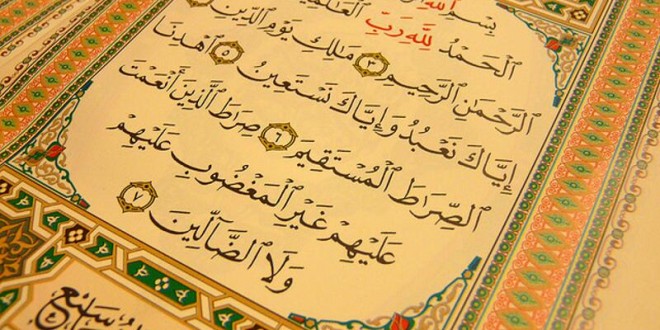 بِسْمِ ٱللَّهِ
ٱلْحَمْدُ لِلَّهِ رَبِّ
ٱلرَّحْمَٰنِ ٱلرَّحِيمِ ٣ مَٰلِكِ يَوْمِ ٱلدِّينِ
إِيَّاكَ نَعْبُدُ وَإِيَّاكَ نَسْتَعِينُ ٥ ٱهْدِنَا
ٱلصِّرَٰطَ ٱلْمُسْتَقِيمَ ٦ صِرَٰطَ ٱلَّذِينَ أَنْعَمْتَ
عَلَيْهِمْ غَيْرِ ٱلْمَغْضُوبِ عَلَيْهِمْ
وَلَا ٱلضَّآلِّينَ ٧